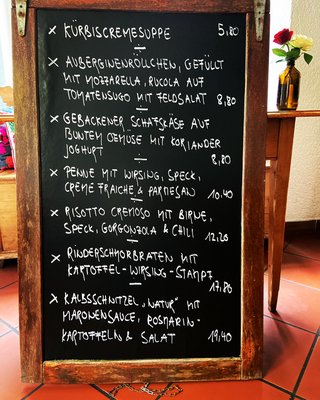 x KÜRBISCREMESUPPE 5,80
x AUBERGINENRÖLLCHEN, GEFÜLLT
MIT MOZZARELLA, RUCOLA AUF
TOMATENSUGO MIT FELDSALAT 8,80
x GEBACKENER SCHAFSKÄSE AUF
BUNTEM GEMÜSE MIT KORIANDER
JOGHURT 8,80
x PENNE MIT WIRSING, SPECK,
CREME FRAICHE & PARMESAN 10,40
x RISOTTO CREMOSO MIT BIRNE,
SPECK, GORGONZOLA & CHILI 12,20
x RINDERSCHMORBRATEN MIT
KARTOFFEL-WIRSING-STAMPF 17,80
x KALBSSCHNITZEL „NATUR" MIT
MARONENSAUCE, ROSMARIN-
KARTOFFELN & SALAT 19,40